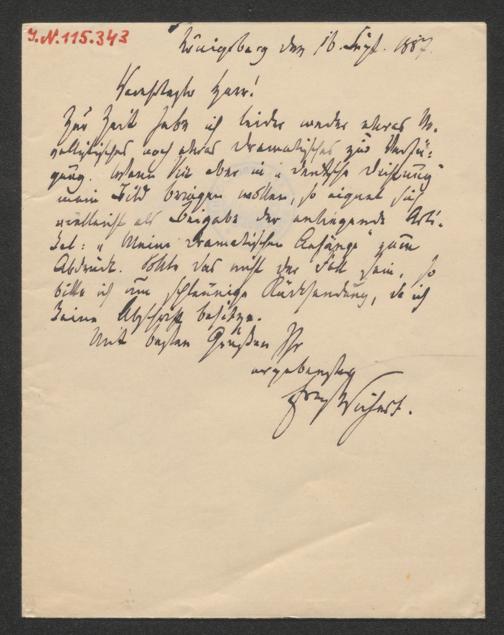 J.N. 115.343
Königsberg den 16. Sept. 1887.
Verehrtester Herr!
Zur Zeit habe ich leider weder etwas No-
vellistisches noch etwas Dramatisches zur Verfü-
gung. Wenn Sie aber in „Deutsche Dichtung“
mein Bild bringen wollen, so eignet sich
vielleicht als Beigabe der anliegende Arti-
kel: „Meine dramatischen Anfänge“ zum
Abdruck. Sollte das nicht der Fall sein, so
bitte ich um schleunige Rücksendung, da ich
keine Abschrift besitze.
Mit besten Grüßen Ihr
ergebenster
Ernst Wichert.